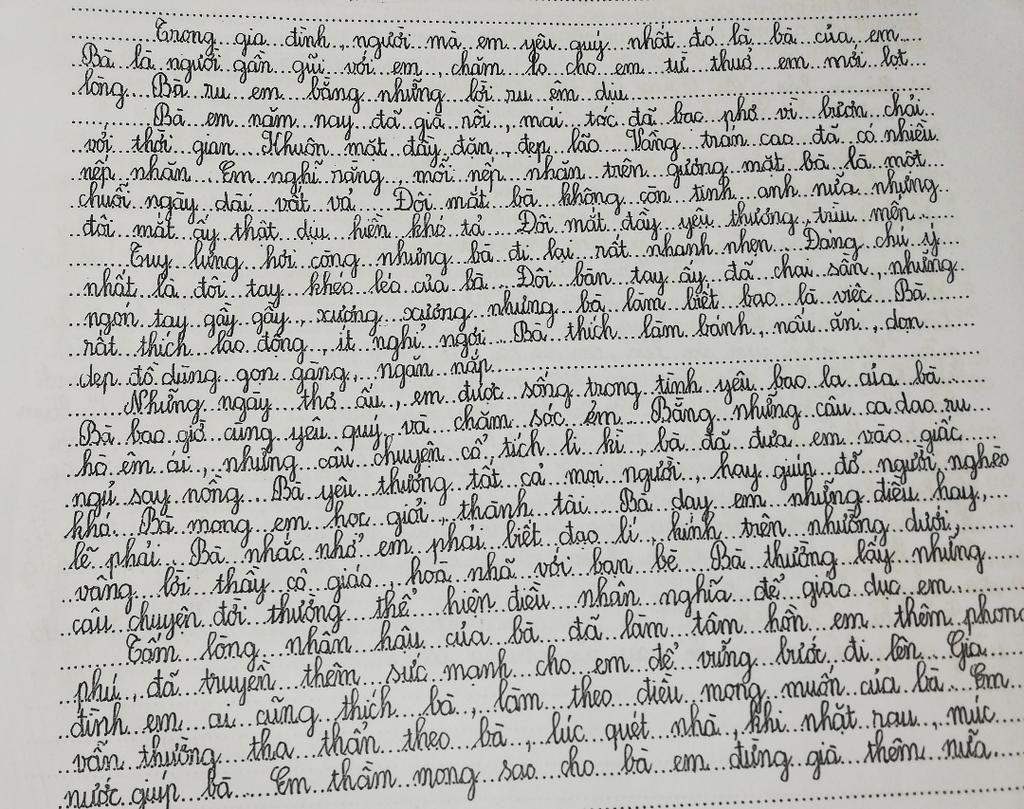 Trong gia đình, người mà em yêu quý nhất đó là bà của em.
Bà là người gần gũi với em, chăm lo cho em từ thuở em mới lọt
lòng. Bà ru em bằng những lời ru êm dịu.
Bà em năm nay đã già rồi, mái tóc đã bạc phơ vì bươn chải
với thời gian. Khuôn mặt đầy đặn, đẹp lão. Vầng trán cao đã có nhiều
nếp nhăn. Em nghĩ rằng, mỗi nếp nhăn trên gương mặt bà là một
chuỗi ngày dài vất vả. Đôi mắt bà không còn tinh anh nữa nhưng
đôi mắt ấy thật dịu hiền khó tả. Đôi mắt đầy yêu thương, trìu mến.
Tuy lưng hơi còng nhưng bà đi lại rất nhanh nhẹn. Đáng chú ý
nhất là đôi tay khéo léo của bà. Đôi bàn tay ấy đã chai sần, những
ngón tay gầy gầy, xương xương nhưng bà làm biết bao là việc. Bà
rất thích lao động, ít nghỉ ngơi. Bà thích làm bánh, nấu ăn, dọn
dẹp đồ dùng gọn gàng, ngăn nắp.
Những ngày thơ ấu, em được sống trong tình yêu bao la của bà.
Bà bao giờ cũng yêu quý và chăm sóc em. Bằng những câu ca dao ru
hò êm ái, những câu chuyện cổ tích li kì, bà đã đưa em vào giấc
ngủ say nồng. Bà yêu thương tất cả mọi người, hay giúp đỡ người nghèo
khó. Bà mong em học giỏi, thành tài. Bà dạy em những điều hay,
lẽ phải. Bà nhắc nhở em phải biết đạo lí, kính trên nhường dưới,
vâng lời thầy cô giáo, hoà nhã với bạn bè. Bà thường lấy những
câu chuyện đời thường thể hiện điều nhân nghĩa để giáo dục em.
Tấm lòng nhân hậu của bà đã làm tâm hồn em thêm phong
phú, đã truyền thêm sức mạnh cho em để vững bước đi lên. Gia
đình em ai cũng thích bà, làm theo điều mong muốn của bà. Em
vẫn thường tha thẩn theo bà, lúc quét nhà, khi nhặt rau, múc
nước giúp bà. Em thầm mong sao cho bà em đừng già thêm nữa